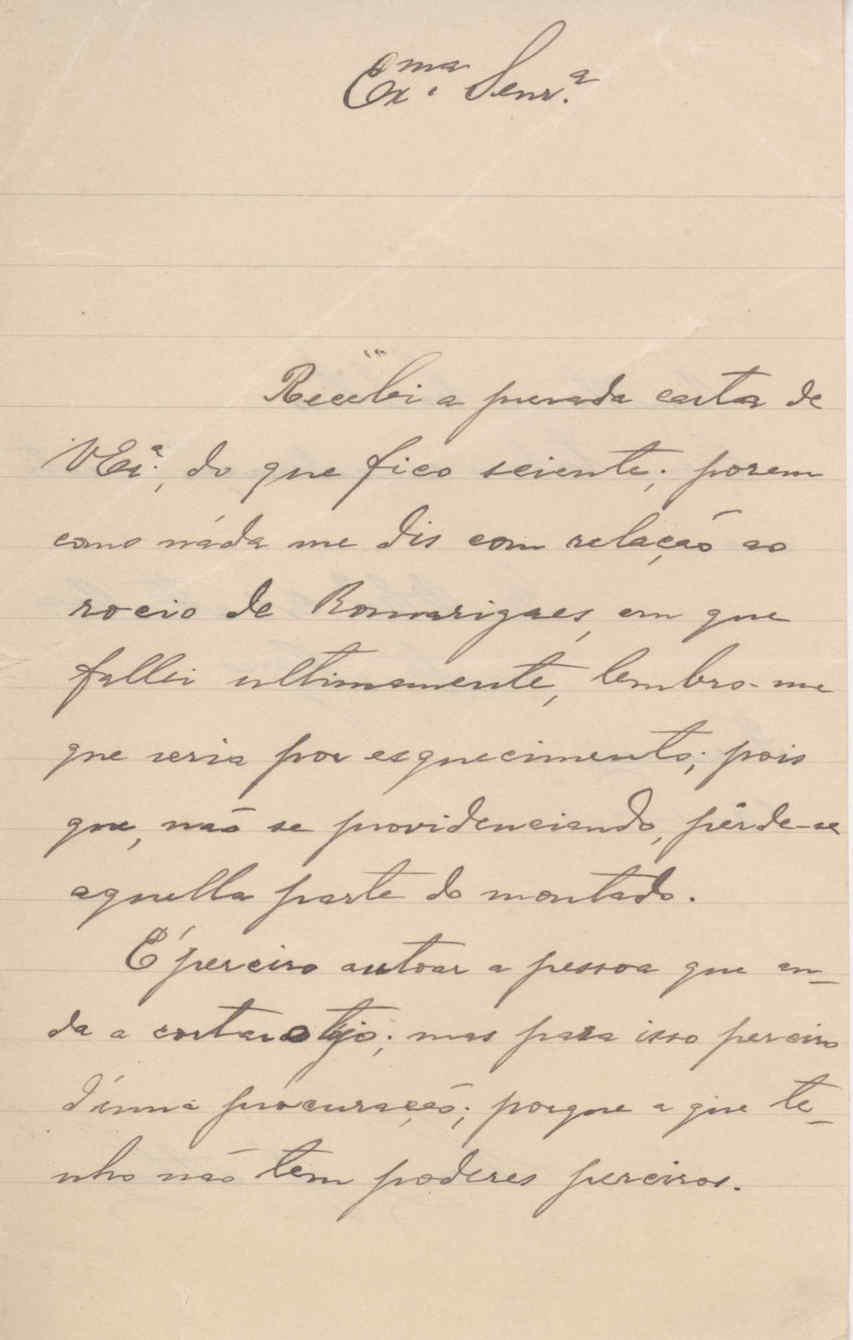 Ex.ma Senr.a
Recebi a presada carta de
VExa., do que fico sciente; porem
como náda me dis com relação ao
rocio de Romarigaes, em que
fallei ultimamente, lembro-me
que seria por esquecimento; pois
que, não se providenciando, pérde-se
aquella parte do montado.
É perciso autoar a pessoa que an-
da a cortar o tojo; mas para isso perciso
d'uma procuração; porque a que te-
nho não tem poderes percisos.